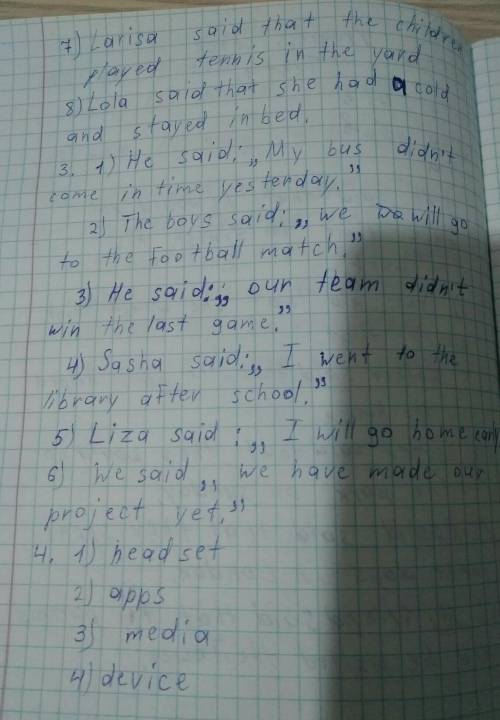 7) Larisa said that the children
played tennis in the yard
8) Lola said that she had a cold
and stayed in bed.
3. 1) He said: „My bus didn't
come in time yesterday.”
2) The boys said: „we will go
to the football match.”
3) He said: „our team didn't
win the last game.”
4) Sasha said: „I went to the
library after school.”
5) Liza said: „I will go home early
6) we said „we have made our
project yet.”
4. 1) headset
2) apps
3) media
4) device